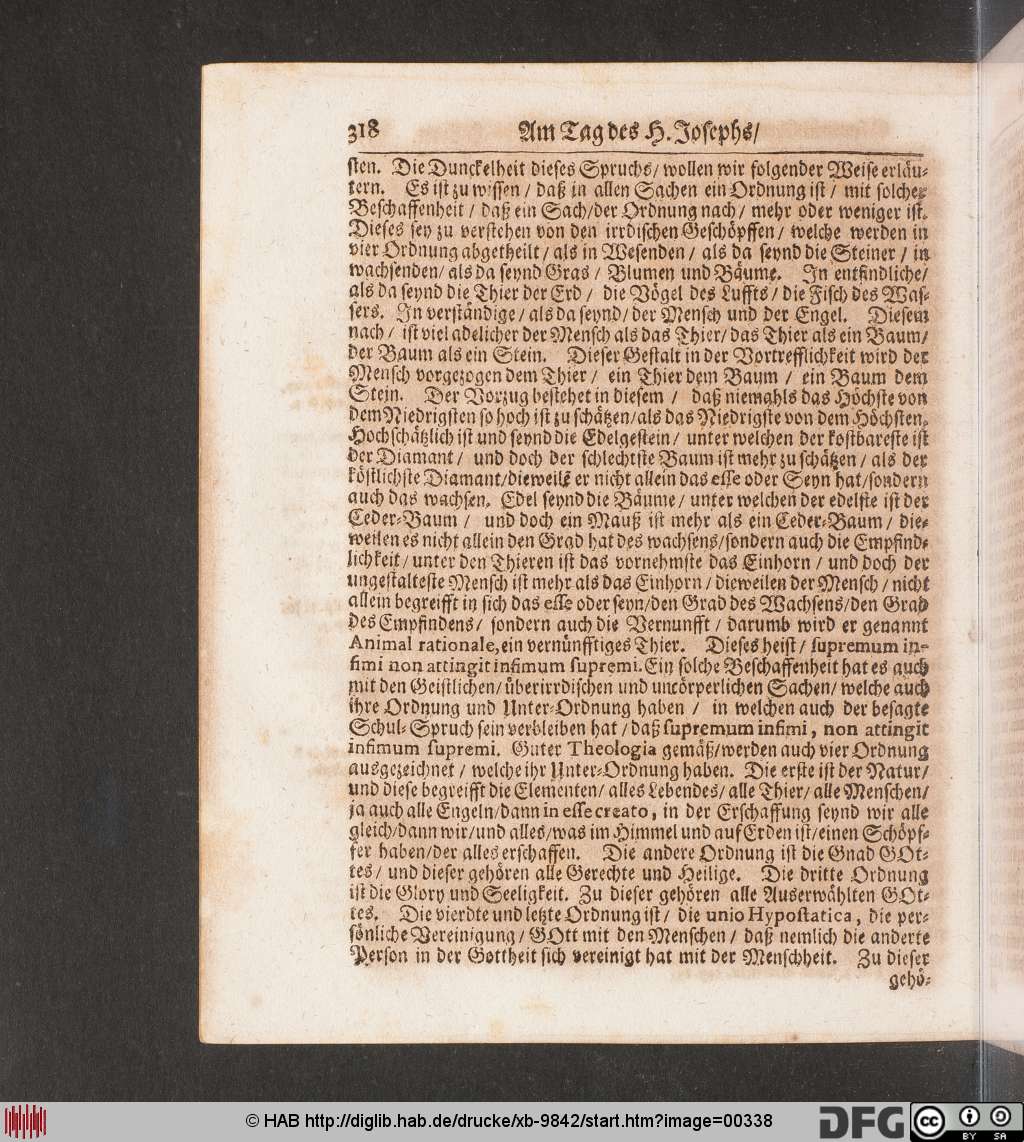 318 Am Tag des H. Josephs/
sten. Die Dunckelheit dieses Spruchs/ wollen wir folgender Weise erläu-
tern. Es ist zu wissen / daß in allen Sachen ein Ordnung ist / mit solcher
Beschaffenheit / daß ein Sach/der Ordnung nach/ mehr oder weniger ist.
Dieses sey zu verstehen von den irrdischen Geschöpffen/ welche werden in
vier Ordnung abgetheilt/ als in Wesenden / als da seynd die Steiner / in
wachsenden/ als da seynd Gras / Blumen und Bäume. In entfindliche/
als da seynd die Thier der Erd / die Vögel des Luffts / die Fisch des Was-
sers. In verständige / als da seynd/ der Mensch und der Engel. Diesem
nach / ist viel adelicher der Mensch als das Thier/ das Thier als ein Baum/
der Baum als ein Stein. Dieser Gestalt in der Vortrefflichkeit wird der
Mensch vorgezogen dem Thier / ein Thier dem Baum / ein Baum dem
Stein. Der Vorzug bestehet in diesem / daß niemahls das Höchste von
dem Niedrigsten so hoch ist zu schätzen/als das Niedrigste von dem Höchsten.
Hochschätzlich ist und seynd die Edelgestein / unter welchen der kostbareste ist
der Diamant / und doch der schlechtste Baum ist mehr zu schätzen / als der
köstlichste Diamant/dieweile er nicht allein das esse oder Seyn hat/sondern
auch das wachsen. Edel seynd die Bäume / unter welchen der edelste ist der
Ceder-Baum / und doch ein Mauß ist mehr als ein Ceder-Baum / die-
weilen es nicht allein den Grad hat des wachsens/sondern auch die Empfind-
lichkeit / unter den Thieren ist das vornehmste das Einhorn / und doch der
ungestalteste Mensch ist mehr als das Einhorn / dieweilen der Mensch / nicht
allein begreifft in sich das esse oder seyn/den Grad des Wachsens/den Grad
des Empfindens/ sondern auch die Vernunfft / darumb wird er genannt
Animal rationale, ein vernünfftiges Thier. Dieses heist / supremum in-
fimi non attingit infimum supremi. Ein solche Beschaffenheit hat es auch
mit den Geistlichen/ überirrdischen und uncörperlichen Sachen/ welche auch
ihre Ordnung und Unter-Ordnung haben / in welchen auch der besagte
Schul-Spruch sein verbleiben hat / daß supremum infimi, non attingit
infimum supremi. Guter Theologia gemäß/werden auch vier Ordnung
ausgezeichnet / welche ihr Unter-Ordnung haben. Die erste ist der Natur/
und diese begreifft die Elementen/ alles Lebendes/ alle Thier/ alle Menschen/
ja auch alle Engeln/dann in esse creato, in der Erschaffung seynd wir alle
gleich/dann wir/und alles/was im Himmel und auf Erden ist/einen Schöpf-
fer haben/der alles erschaffen. Die andere Ordnung ist die Gnad GOt-
tes/ und dieser gehören alle Gerechte und Heilige. Die dritte Ordnung
ist die Glory und Seeligkeit. Zu dieser gehören alle Auserwählten GOt-
tes. Die vierdte und letzte Ordnung ist / die unio Hypostatica, die per-
sönliche Vereinigung / GOtt mit den Menschen / daß nemlich die anderte
Person in der Gottheit sich vereinigt hat mit der Menschheit. Zu dieser
gehö-
© HAB http://diglib.hab.de/drucke/xb-9842/start.htm?image=00338
DFG
cc BY SA